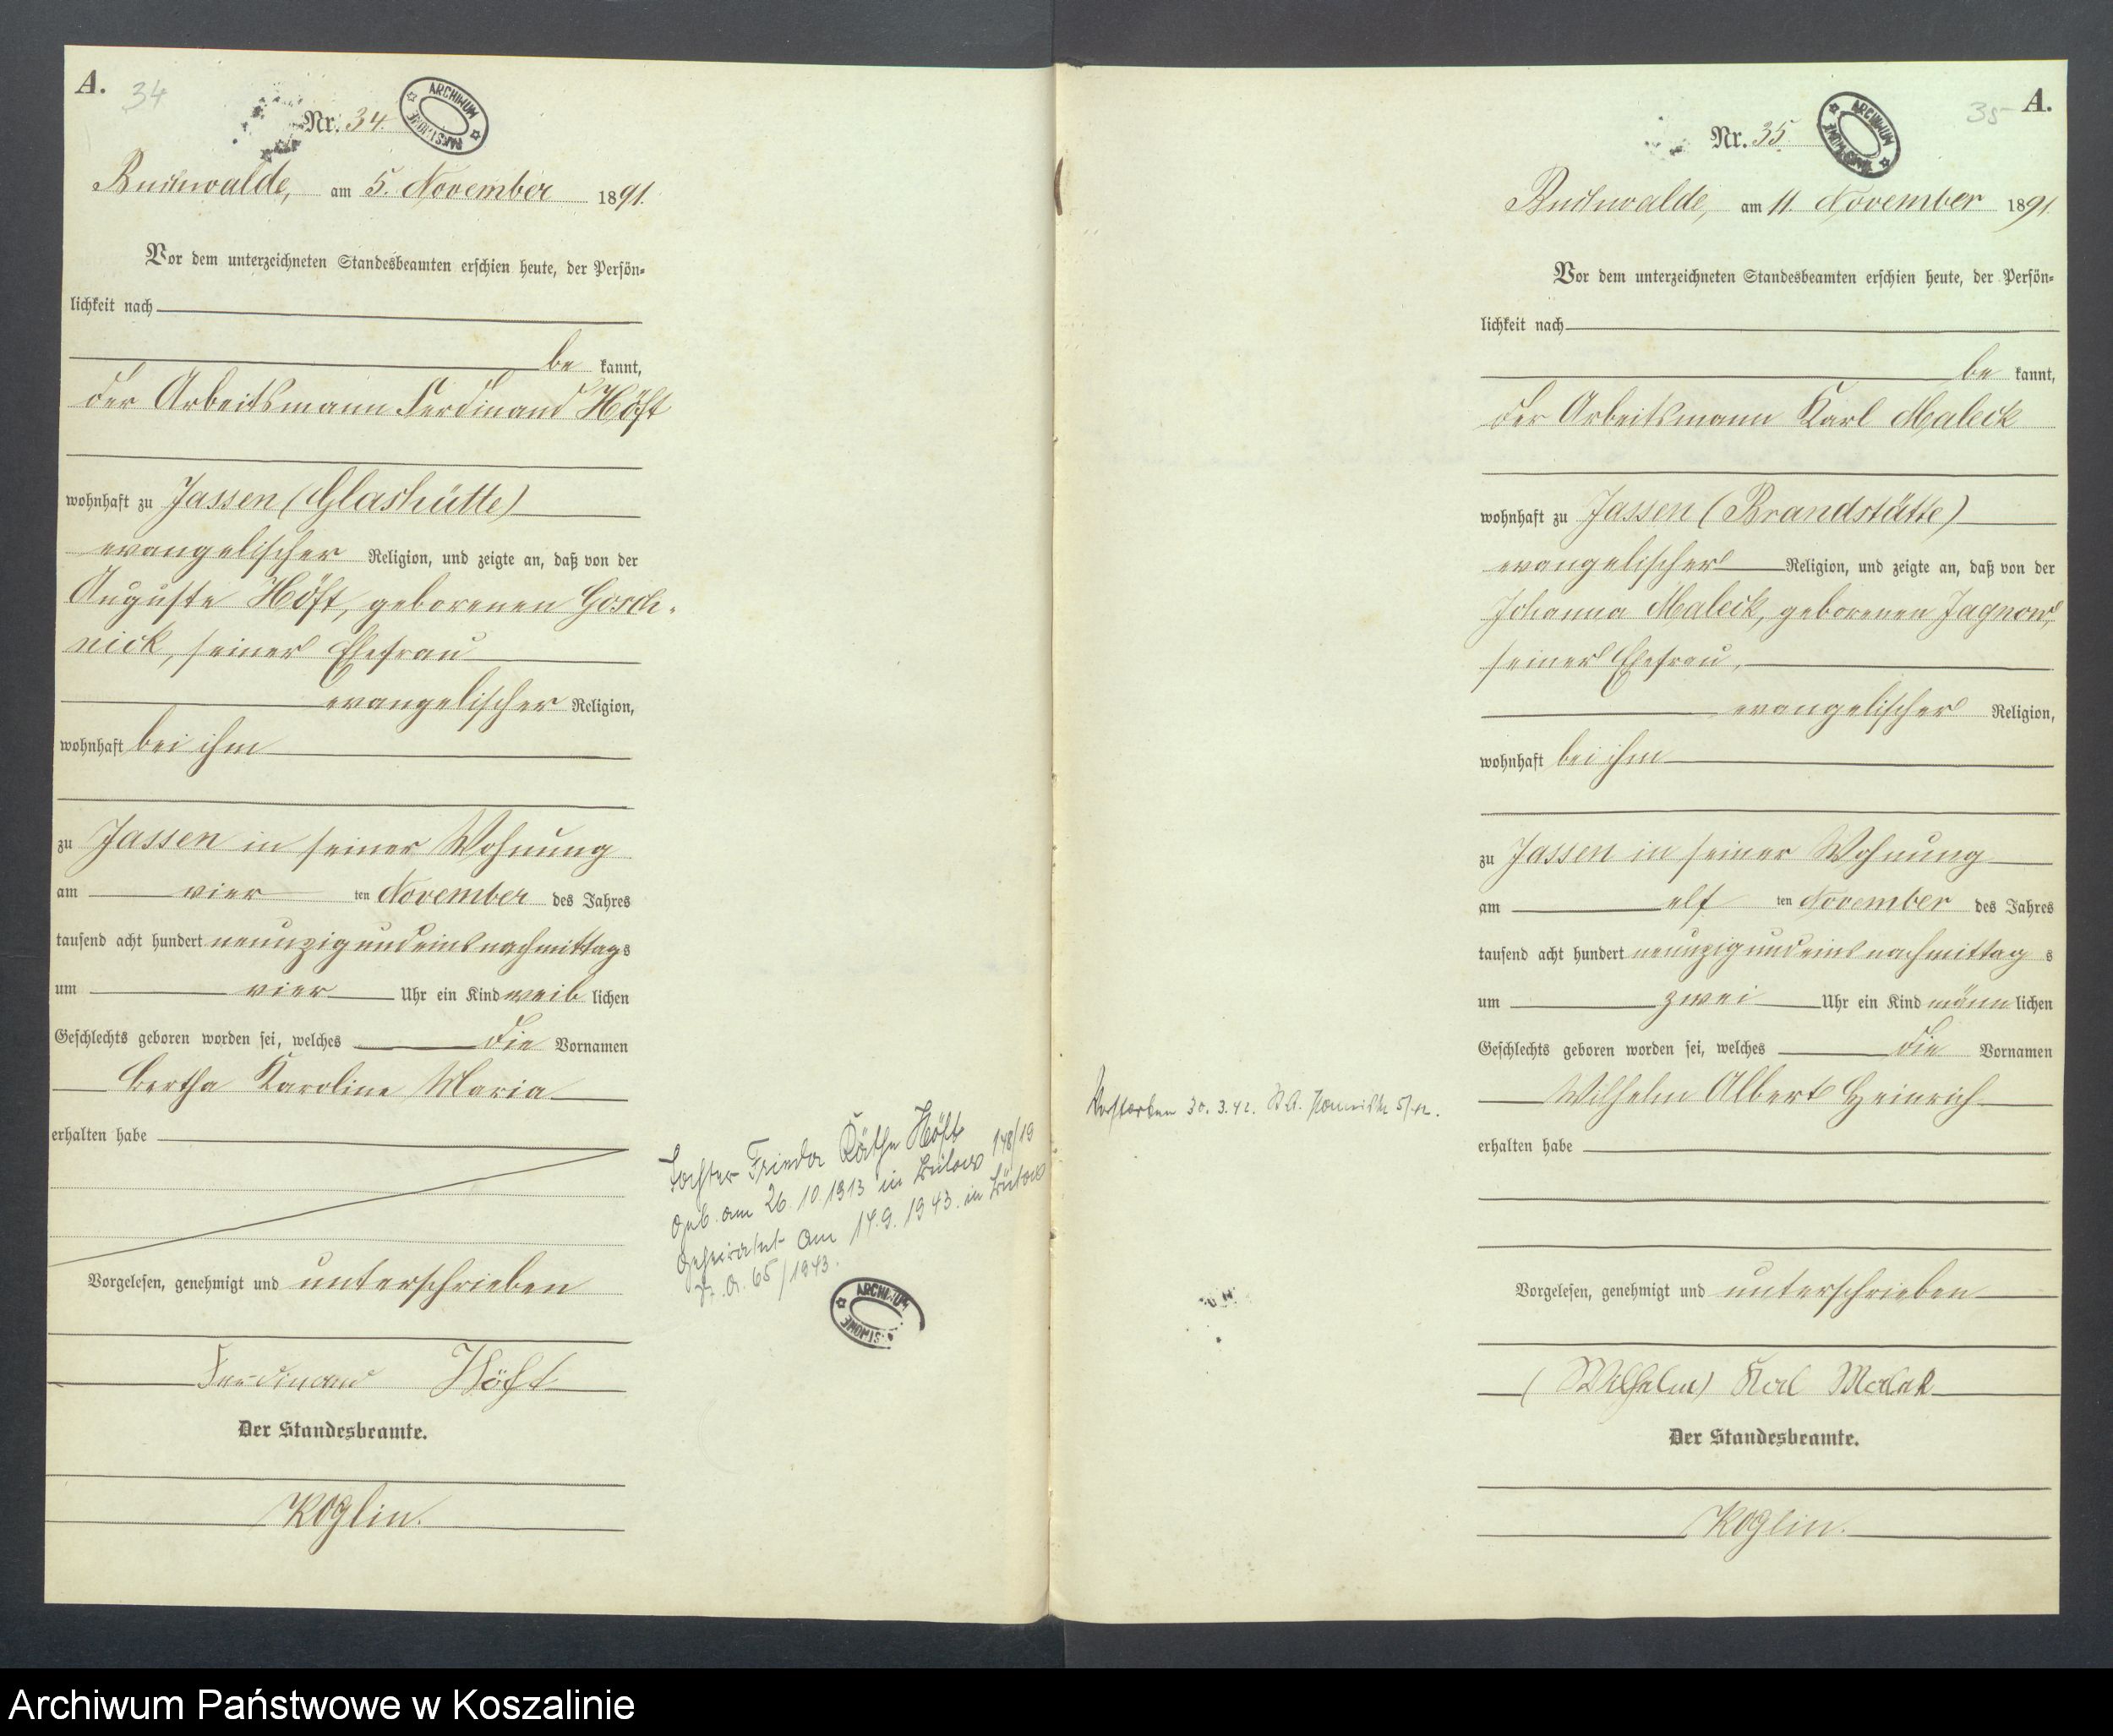 A.
34
Nr. 34.
ARCHIWUM PAŃSTWOWE
Buchwalde, am 5. November 1891.
Vor dem unterzeichneten Standesbeamten erschien heute, der Persön-
lichkeit nach
be kannt,
der Arbeitsmann Ferdinand Höft
wohnhaft zu Jassen (Glashütte)
evangelischer Religion, und zeigte an, daß von der
Auguste Höft, geborenen Gosch-
nick, seiner Ehefrau
evangelischer Religion,
wohnhaft bei ihm
zu Jassen in seiner Wohnung
am vier ten November des Jahres
tausend acht hundert neunzig und eins nachmittags
um vier Uhr ein Kind weib lichen
Geschlechts geboren worden sei, welches die Vornamen
Bertha Karoline Maria
erhalten habe
Vorgelesen, genehmigt und unterschrieben
Ferdinand Höft
Der Standesbeamte.
Koglin.
Tochter Frieda Käthe Höft
geb. am 26.10.1913 in Bütow 148/19
geheiratet am 14.9.1943 in Bütow
65/1943.
ARCHIWUM
A.
35
Nr. 35
ARCHIWUM PAŃSTWOWE
Buchwalde, am 11. November 1891.
Vor dem unterzeichneten Standesbeamten erschien heute, der Persön-
lichkeit nach
be kannt,
der Arbeitsmann Karl Maleck
wohnhaft zu Jassen (Brandstätte)
evangelischer Religion, und zeigte an, daß von der
Johanna Maleck, geborenen Jagnow,
seiner Ehefrau,
evangelischer Religion,
wohnhaft bei ihm
zu Jassen in seiner Wohnung
am elf ten November des Jahres
tausend acht hundert neunzig und eins nachmittag s
um zwei Uhr ein Kind männ lichen
Geschlechts geboren worden sei, welches die Vornamen
Wilhelm Albert Heinrich
erhalten habe
Verstorben 30.3.42. St.A. 5/42.
Vorgelesen, genehmigt und unterschrieben
(Wilhelm) Karl Malek
Der Standesbeamte.
Koglin.
Archiwum Państwowe w Koszalinie